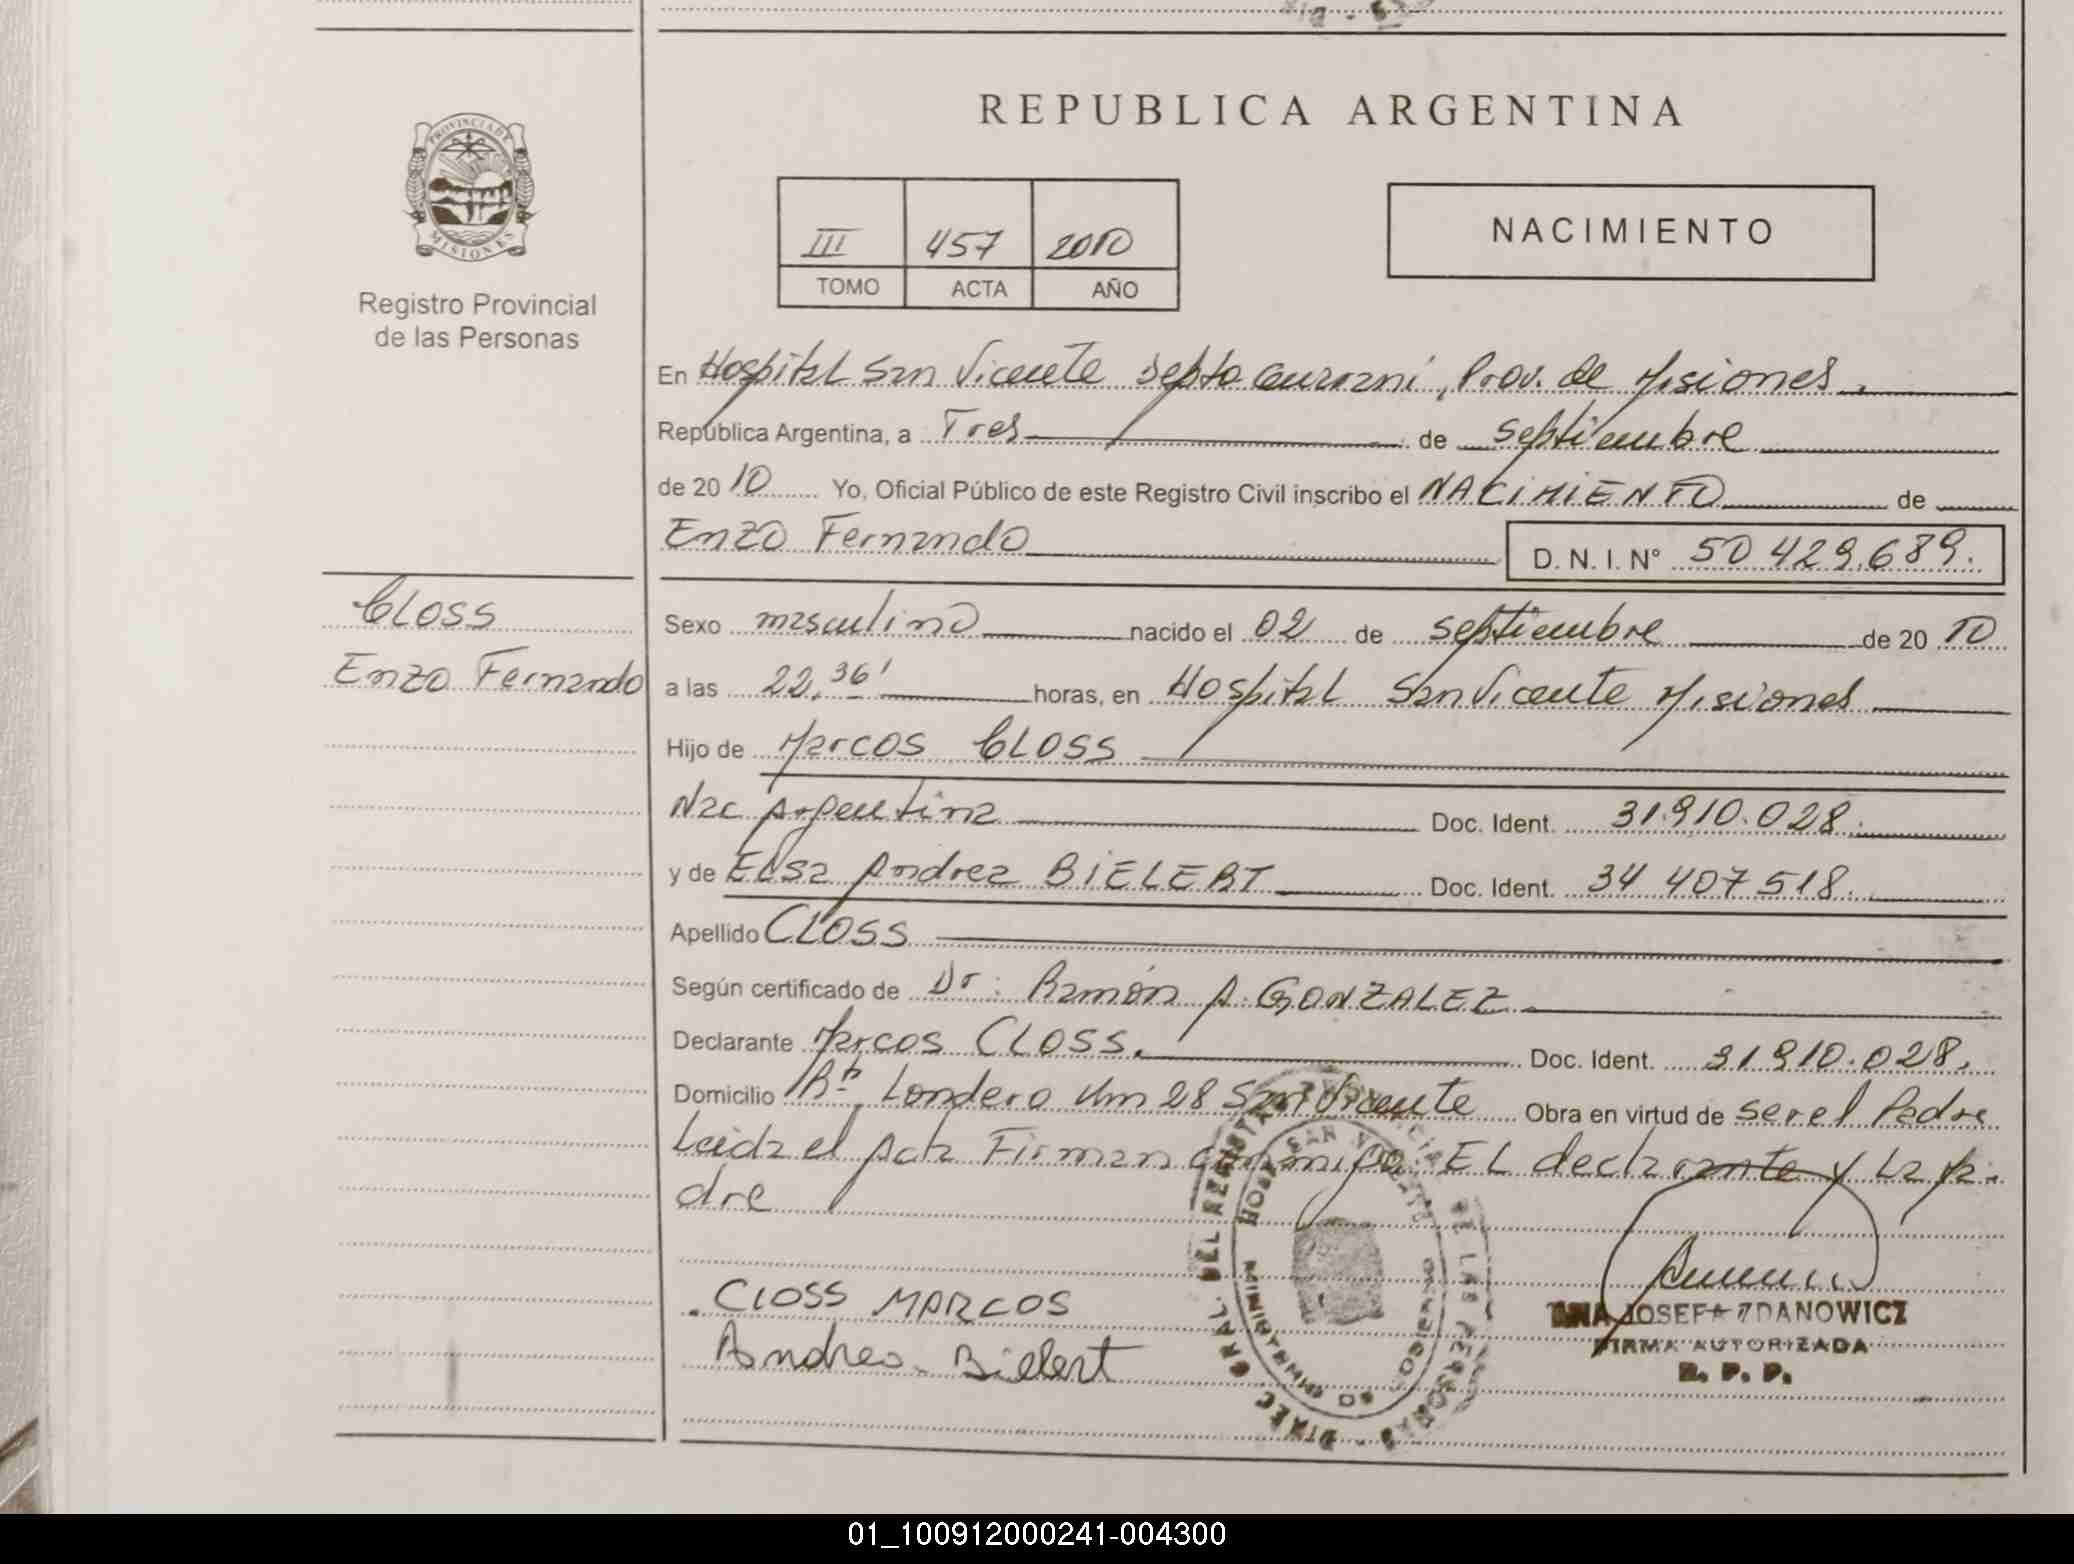 REPUBLICA ARGENTINA
PROVINCIA DE MISIONES
Registro Provincial
de las Personas
III 457 2010
TOMO ACTA AÑO
NACIMIENTO
En Hospital San Vicente Depto Guarani, Prov. de Misiones.
República Argentina, a Tres de Septiembre
de 2010 Yo, Oficial Público de este Registro Civil inscribo el NACIMIENTO de
Enzo Fernando D. N. I. N° 50 429.689.
CLOSS
Enzo Fernando
Sexo masculino nacido el 02 de Septiembre de 2010
a las 22,36' horas, en Hospital San Vicente Misiones
Hijo de Marcos CLOSS
Nac Argentina Doc. Ident. 31.910.028.
y de Elsa Andrea BIELERT Doc. Ident. 34 407 518.
Apellido CLOSS
Según certificado de Dr: Ramón A. GONZALEZ
Declarante Marcos CLOSS. Doc. Ident. 31910.028.
Domicilio Bº Londero Km 28 San Vicente Obra en virtud de ser el Padre
Leida el Acta Firman conmigo El declarante y La Ma-
dre
Closs MARCOS
Andrea Bielert
ANA JOSEFA ZDANOWICZ
FIRMA AUTORIZADA
R. P. P.
DIREC GRAL. DEL REGISTRO PROVINCIAL DE LAS PERSONAS
HOSP. SAN VICENTE
01_100912000241-004300